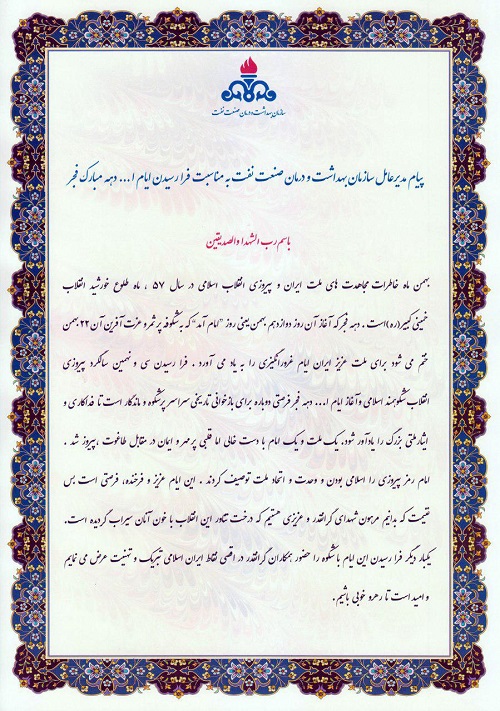 سازمان بهداشت و درمان صنعت نفت
پیام مدیرعامل سازمان بهداشت و درمان صنعت نفت به مناسبت فرا رسیدن ایام ا... دهه مبارک فجر
باسم رب الشهدا والصدیقین
بهمن ماه خاطرات مجاهدت های ملت ایران و پیروزی انقلاب اسلامی در سال ۵۷ ، ماه طلوع خورشید انقلاب
خمینی کبیر(ره)است . دهه فجر که آغاز آن روز دوازدهم بهمن یعنی روز "امام آمد" که به شکوفه پر ثمر و عزت آفرین آن ۲۲ بهمن
ختم می شود برای ملت عزیز ایران ایام غرورانگیزی را به یاد می آورد . فرا رسیدن سی و نهمین سالگرد پیروزی
انقلاب شکوهمند اسلامی و آغاز ایام ا... دهه فجر فرصتی دوباره برای بازخوانی تاریخی سراسر پرشکوه و ماندگار است تا فداکاری و
ایثار ملتی بزرگ را یادآور شود. یک ملت و یک امام با دست خالی اما قلبی پر مهر و ایمان در مقابل طاغوت ، پیروز شد .
امام رمز پیروزی را اسلامی بودن و وحدت و اتحاد ملت توصیف کردند . این ایام عزیز و فرخنده، فرصتی است بس
تا بدانیم مرهون شهدای گرانقدر و عزیزی هستیم که درخت تناور این انقلاب با خون آنان سیراب گردیده است.
یکبار دیگر فرا رسیدن این ایام با شکوه را حضور همکاران گرانقدر در اقصی نقاط ایران اسلامی تبریک و تهنیت عرض می نمایم
و امید است تا رهرو خوبی باشیم .